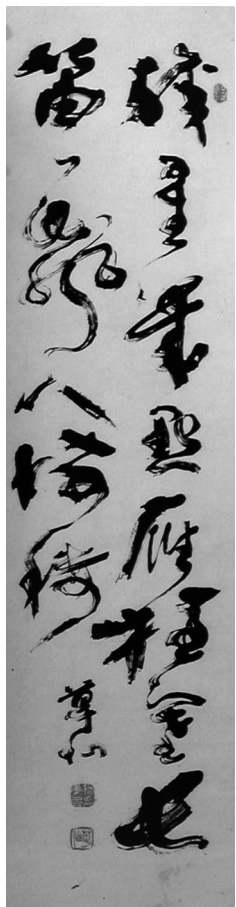 残星幾點雁横塞長
笛一聲人倚樓
草仙